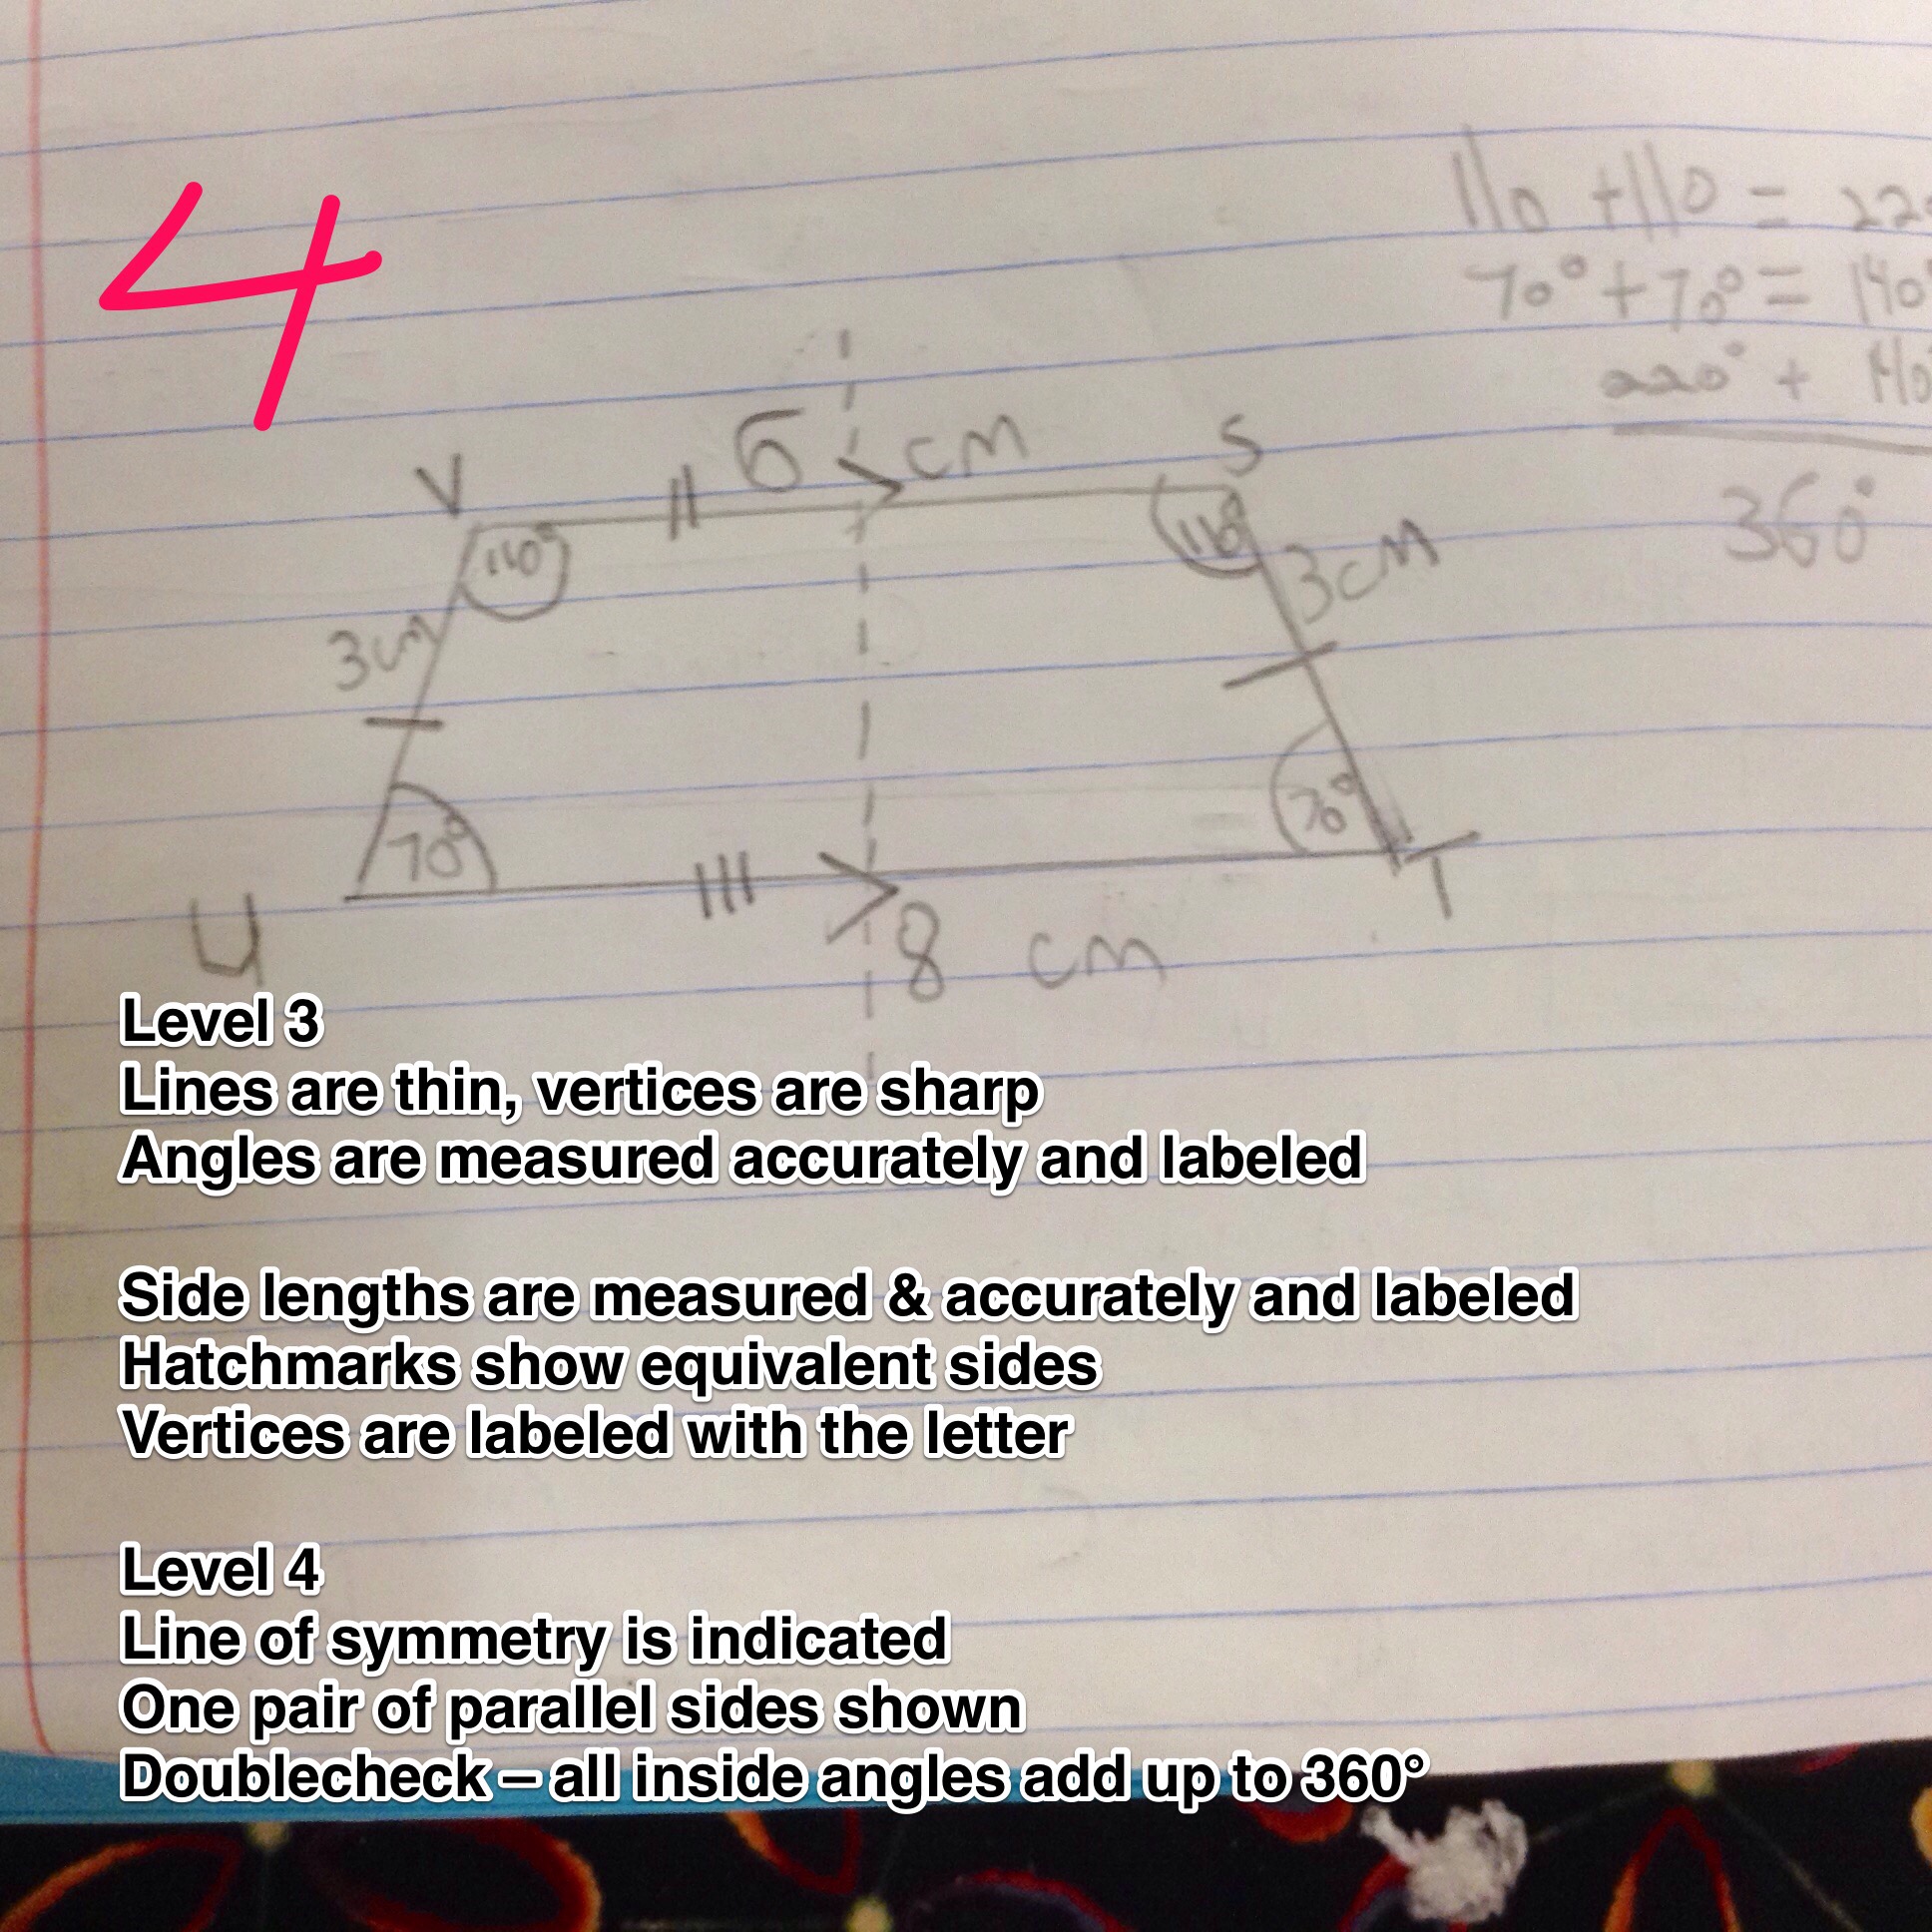 4
110 + 110 = 220
70° + 70° = 140°
220° + 140°
360°
6 cm
V
S
110°
110°
3cm
3cm
70°
70°
U
T
8 cm
Level 3
Lines are thin, vertices are sharp
Angles are measured accurately and labeled
Side lengths are measured & accurately and labeled
Hatchmarks show equivalent sides
Vertices are labeled with the letter
Level 4
Line of symmetry is indicated
One pair of parallel sides shown
Doublecheck – all inside angles add up to 360°